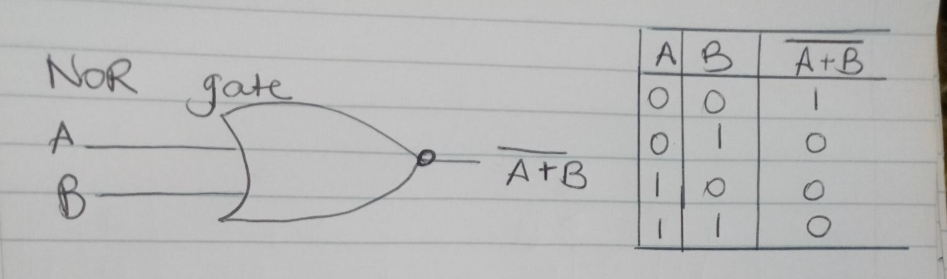 NOR gate
A
B
A̅+̅B̅
A B A̅+̅B̅
0 0 1
0 1 0
1 0 0
1 1 0